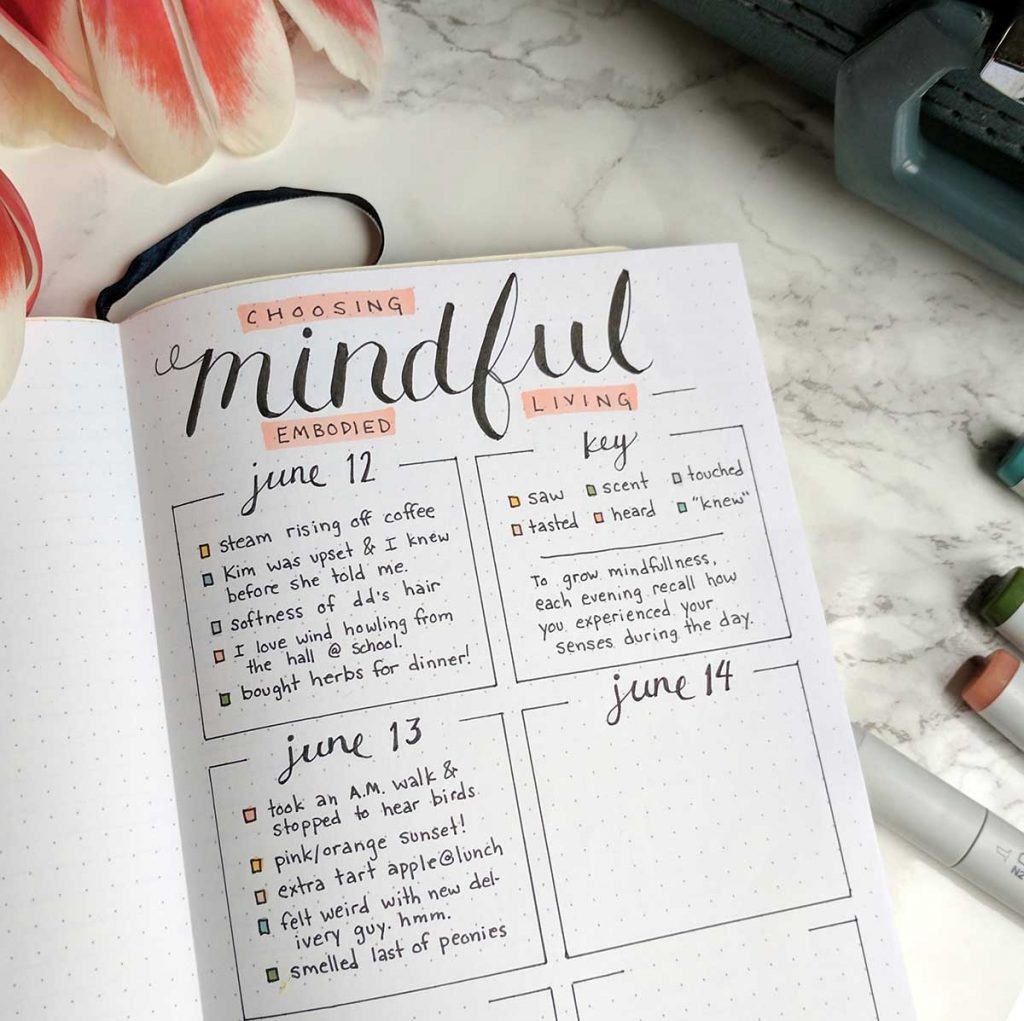 CHOOSING
mindful
EMBODIED
LIVING
june 12
steam rising off coffee
Kim was upset & I knew
before she told me.
softness of dd's hair
I love wind howling from
the hall @ school.
bought herbs for dinner!
key
saw scent touched
tasted heard "knew"
To grow mindfullness,
each evening recall how
you experienced your
senses during the day.
june 13
took an A.M. walk &
stopped to hear birds
pink/orange sunset!
extra tart apple@lunch
felt weird with new del-
ivery guy. hmm.
smelled last of peonies
june 14